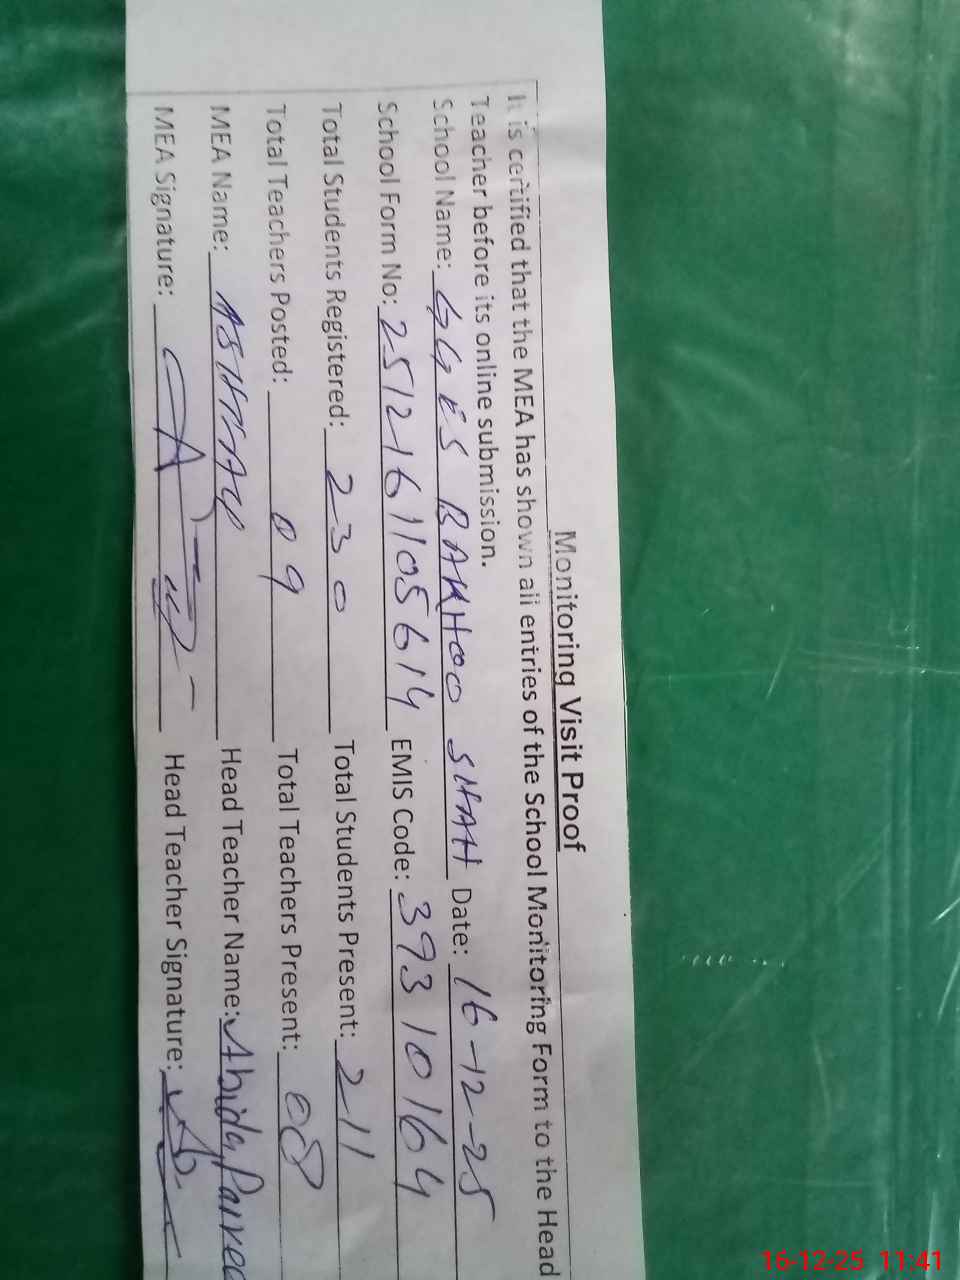 Monitoring Visit Proof
It is certified that the MEA has shown all entries of the School Monitoring Form to the Head
Teacher before its online submission.
School Name: GGES BAKHOO SHAH Date: 16-12-25
School Form No: 2512161105614 EMIS Code: 39310164
Total Students Registered: 230 Total Students Present: 211
Total Teachers Posted: 09 Total Teachers Present: 08
MEA Name: Head Teacher Name: Abida Parvee
MEA Signature: Head Teacher Signature:
16-12-25 11:41